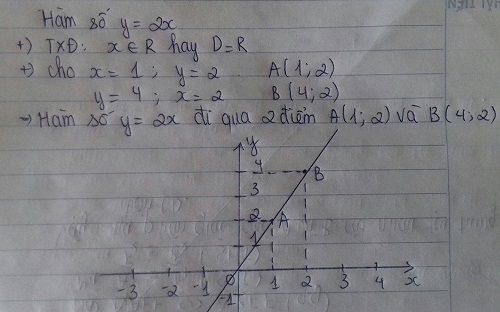 Hàm số y = 2x
+) TXĐ: x ∈ R hay D = R
+) cho x = 1 ; y = 2 A(1; 2)
y = 4 ; x = 2 B(4; 2)
→ Hàm số y = 2x đi qua 2 điểm A(1; 2) và B(4; 2)
y
4 B
3
2 A
1
O
-3 -2 -1 1 2 3 4 x
-1